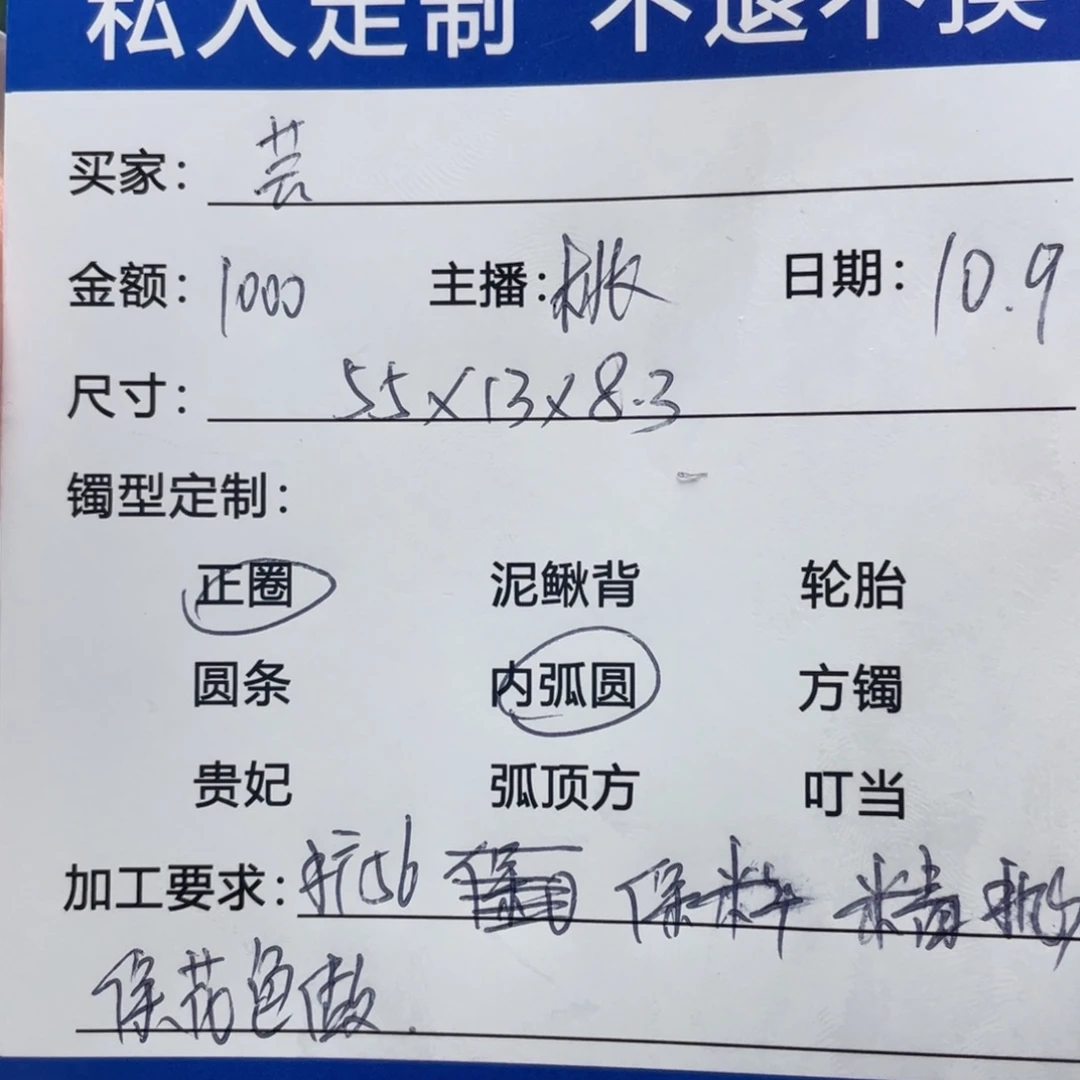 私人定制 不退不换
买家: 芸
金额: 1000 主播: 桃 日期: 10.9
尺寸: 55×13×8.3
镯型定制:
正圈 泥鳅背 轮胎
圆条 内弧圆 方镯
贵妃 弧顶方 叮当
加工要求: 扩56 保料 精抛
保花色做.